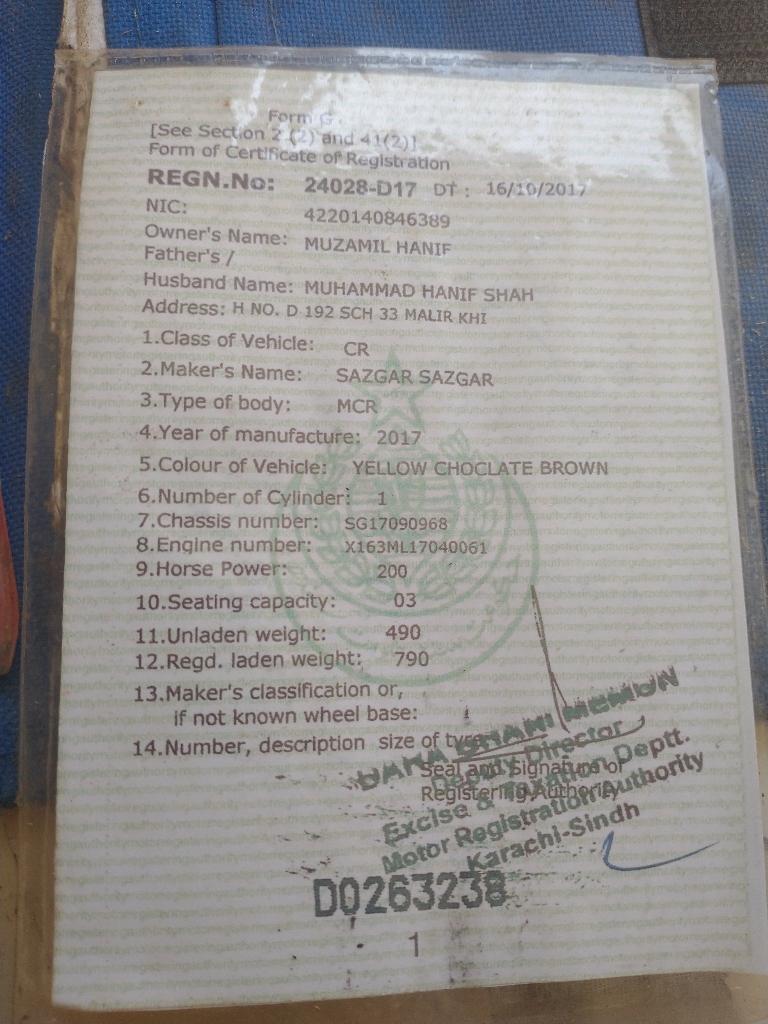 Form G.
[See Section 2 (2) and 41(2)]
Form of Certificate of Registration
REGN.No: 24028-D17 DT : 16/10/2017
NIC: 4220140846389
Owner's Name: MUZAMIL HANIF
Father's /
Husband Name: MUHAMMAD HANIF SHAH
Address: H NO. D 192 SCH 33 MALIR KHI
1.Class of Vehicle: CR
2.Maker's Name: SAZGAR SAZGAR
3.Type of body: MCR
4.Year of manufacture: 2017
5.Colour of Vehicle: YELLOW CHOCLATE BROWN
6.Number of Cylinder: 1
7.Chassis number: SG17090968
8.Engine number: X163ML17040061
9.Horse Power: 200
10.Seating capacity: 03
11.Unladen weight: 490
12.Regd. laden weight: 790
13.Maker's classification or,
if not known wheel base:
14.Number, description size of tyre
MEMON
Deputy Director
Seal and Signature of
Registering Authority
Excise & Taxation Deptt.
Motor Registration Authority
Karachi-Sindh
D0263238
1